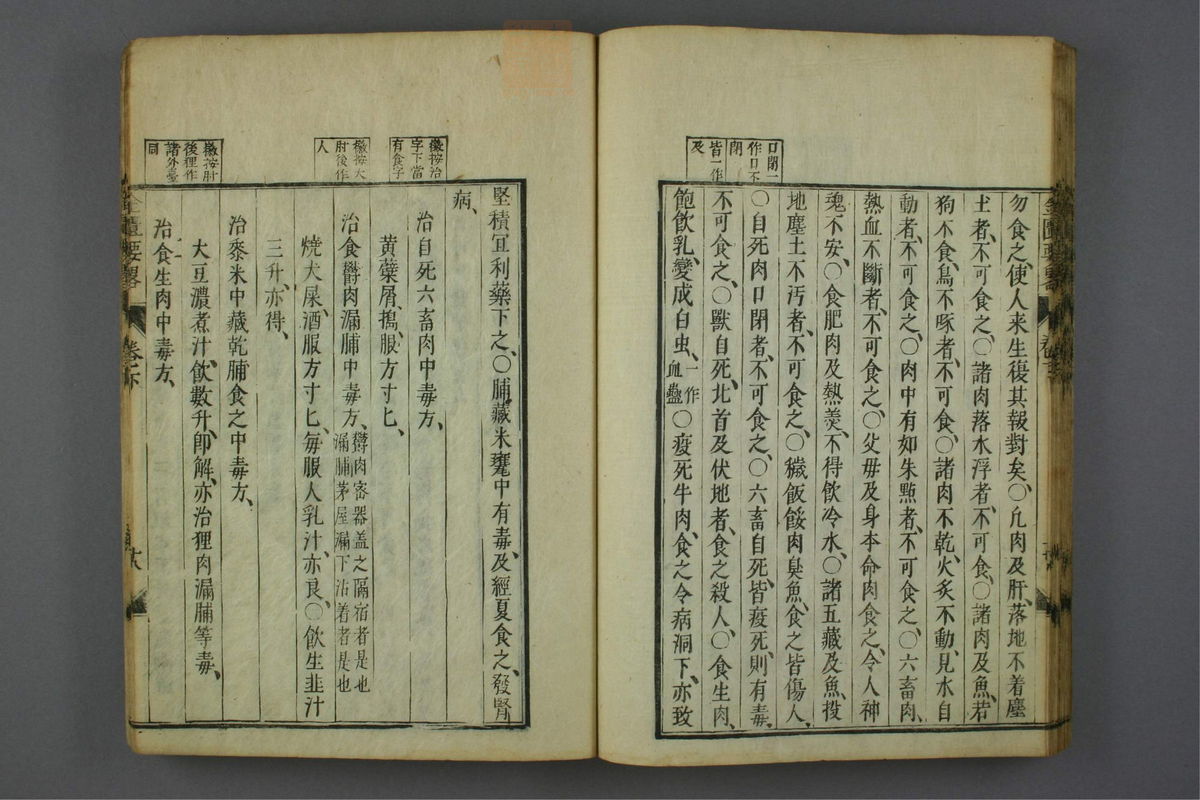 口閉一
作口不
閉
皆一作
及
勿食之、使人来生復其報對矣、○凢肉及肝、落地不着塵
土者、不可食之、○諸肉落水浮者、不可食、○諸肉及魚、若
狗不食、鳥不啄者、不可食、○諸肉不乾、火炙不動、見水自
動者、不可食之、○肉中有如朱㸃者、不可食之、○六畜肉、
熱血不斷者、不可食之、○父母及身本命肉食之、令人神
魂不安、○食肥肉及熱羹、不得飲冷水、○諸五藏及魚、投
地塵土不汚者、不可食之、○穢飯餒肉臭魚、食之皆傷人、
○自死肉口閉者、不可食之、○六畜自死、皆疫死、則有毒、
不可食之、○獸自死、北首及伏地者、食之殺人、○食生肉、
飽飲乳、變成白虫、一作血蠱○疫死牛肉、食之令病洞下、亦致
徽按治
字下當
有食字
徽按犬
肘後作
人
徽按肘
後狸作
諸外臺
同
堅積冝利藥下之、○脯藏米甕中有毒、及經夏食之、發腎
病、
治自死六畜肉中毒方、
黄蘗屑、搗、服方寸匕、
治食欝肉漏脯中毒方、欝肉宻器盖之隔宿者是也漏脯茅屋漏下沾着者是也
燒犬屎、酒服方寸匕、毎服人乳汁、亦良、○飲生韭汁
三升、亦得、
治黍米中藏乾脯食之中毒方、
大豆濃煮汁、飲數升、卽解、亦治狸肉漏脯等毒、
治食生肉中毒方、
金匱要畧
卷下